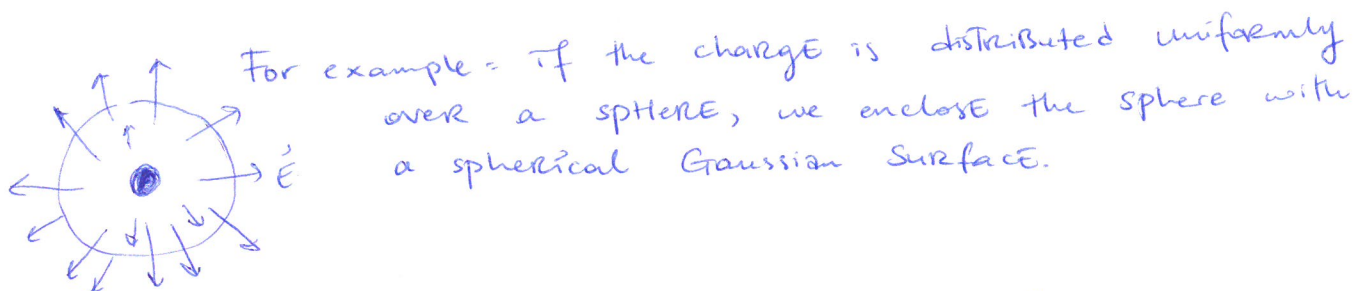 For example = if the chargE is distRiButed unifoRmly
oveR a spHeRE, we enclosE the sphere with
É a spheRical Gaussian SuRfacE.